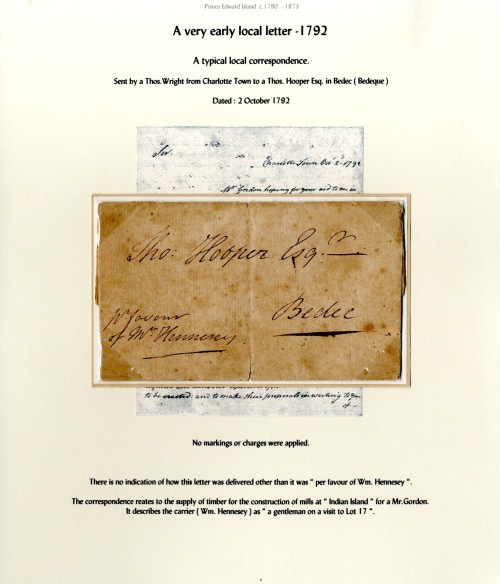 Prince Edward Island c.1790 - 1873
A very early local letter -1792
A typical local correspondence.
Sent by a Thos.Wright from Charlotte Town to a Thos. Hooper Esq. in Bedec ( Bedeque )
Dated : 2 October 1792
Sir.
Charlotte Town Octr 2d 1792
Mr Gordon hoping for your aid to me in
Tho: Hooper Esqr
Bedec
pr favour
of Mr Hennesey
to be erected: and to make their proposals in writing to you
of-
No markings or charges were applied.
There is no indication of how this letter was delivered other than it was " per favour of Wm. Hennesey ".
The correspondence reates to the supply of timber for the construction of mills at " Indian Island " for a Mr.Gordon.
It describes the carrier ( Wm. Hennesey ) as " a gentleman on a visit to Lot 17 ".